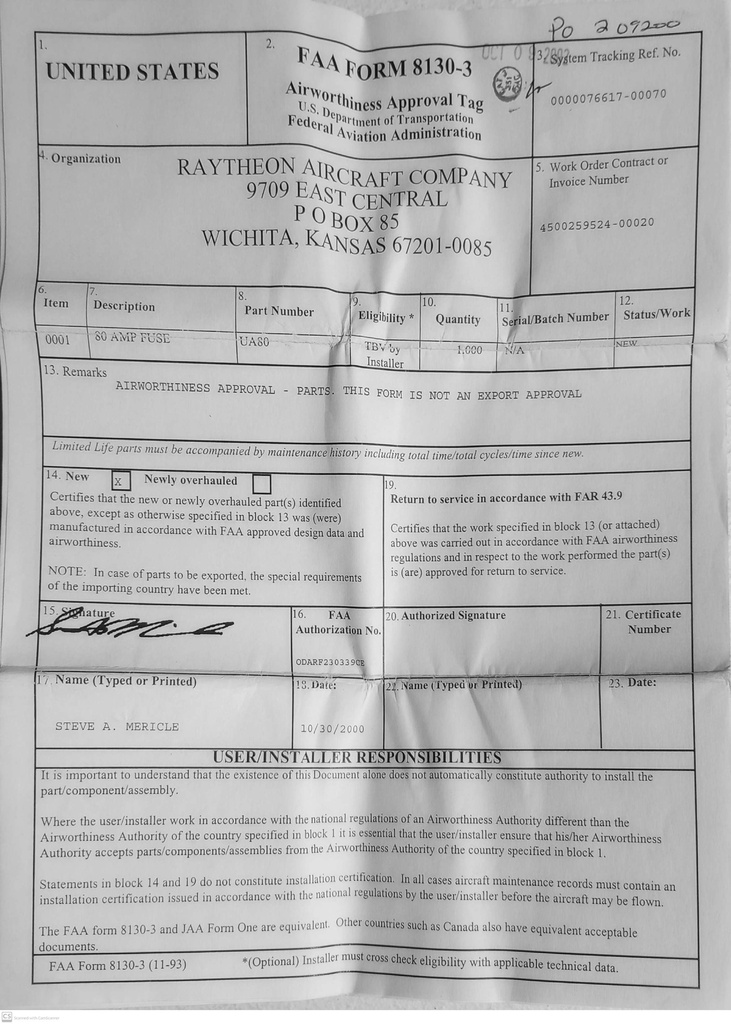 PO 209200
1.
UNITED STATES
2.
FAA FORM 8130-3
Airworthiness Approval Tag
U.S. Department of Transportation
Federal Aviation Administration
OCT 0
3. System Tracking Ref. No.
0000076617-00070
4. Organization
RAYTHEON AIRCRAFT COMPANY
9709 EAST CENTRAL
P O BOX 85
WICHITA, KANSAS 67201-0085
5. Work Order Contract or
Invoice Number
4500259524-00020
6.
Item
7.
Description
8.
Part Number
9.
Eligibility *
10.
Quantity
11.
Serial/Batch Number
12.
Status/Work
0001
80 AMP FUSE
UA80
TBV by
Installer
1.000
N/A
NEW
13. Remarks
AIRWORTHINESS APPROVAL - PARTS. THIS FORM IS NOT AN EXPORT APPROVAL
Limited Life parts must be accompanied by maintenance history including total time/total cycles/time since new.
14. New X Newly overhauled
Certifies that the new or newly overhauled part(s) identified
above, except as otherwise specified in block 13 was (were)
manufactured in accordance with FAA approved design data and
airworthiness.
NOTE: In case of parts to be exported, the special requirements
of the importing country have been met.
19.
Return to service in accordance with FAR 43.9
Certifies that the work specified in block 13 (or attached)
above was carried out in accordance with FAA airworthiness
regulations and in respect to the work performed the part(s)
is (are) approved for return to service.
15. Signature
16. FAA
Authorization No.
ODARF230339CE
20. Authorized Signature
21. Certificate
Number
17. Name (Typed or Printed)
STEVE A. MERICLE
18. Date:
10/30/2000
22. Name (Typed or Printed)
23. Date:
USER/INSTALLER RESPONSIBILITIES
It is important to understand that the existence of this Document alone does not automatically constitute authority to install the
part/component/assembly.
Where the user/installer work in accordance with the national regulations of an Airworthiness Authority different than the
Airworthiness Authority of the country specified in block 1 it is essential that the user/installer ensure that his/her Airworthiness
Authority accepts parts/components/assemblies from the Airworthiness Authority of the country specified in block 1.
Statements in block 14 and 19 do not constitute installation certification. In all cases aircraft maintenance records must contain an
installation certification issued in accordance with the national regulations by the user/installer before the aircraft may be flown.
The FAA form 8130-3 and JAA Form One are equivalent. Other countries such as Canada also have equivalent acceptable
documents.
FAA Form 8130-3 (11-93)
*(Optional) Installer must cross check eligibility with applicable technical data.
CS